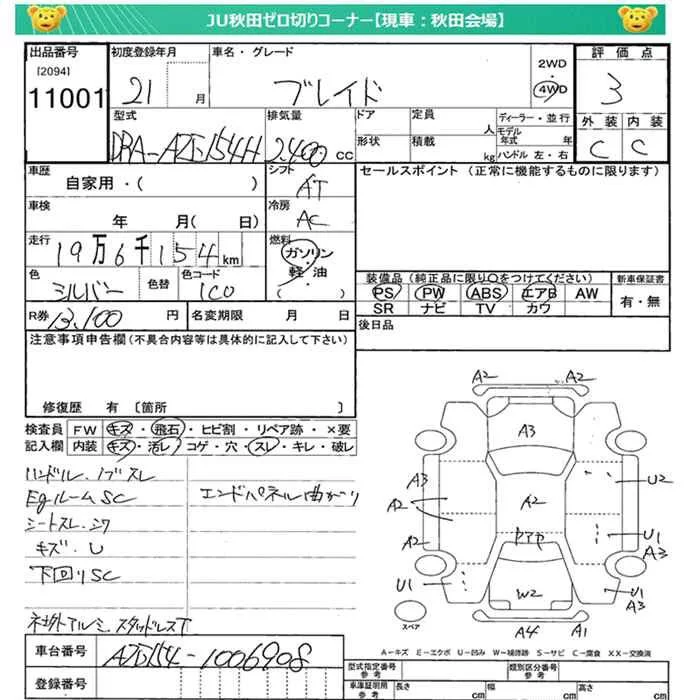 JU秋田ゼロ切りコーナー【現車：秋田会場】
出品番号 [2094] 11001
初度登録年月 21 月
車名・グレード ブレイド
2WD
4WD
評価点 3
外装 内装
C C
型式 DBA-AZE154H
排気量 2,400 CC
ドア 定員 人
形状 積載 kg
ディーラー・並行
モデル年式 年
ハンドル 左・右
車歴 自家用・( )
シフト AT
セールスポイント（正常に機能するものに限ります）
車検 年 月( 日)
冷房 AC
走行 19万6千154km
燃料 ガソリン・軽油 ( )
色 シルバー 色替 色コード 1C0
装備品（純正品に限り○をつけてください） 新車保証書
PS PW ABS エアB AW 有・無
SR ナビ TV カワ
R券 13,100 円 名変期限 月 日
後日品
注意事項申告欄（不具合内容等は具体的に記入して下さい）
修復歴 有〔箇所 〕
検査員記入欄
FW キズ・飛石・ヒビ割・リペア跡・×要
内装 キズ・汚レ・コゲ・穴・スレ・キレ・破レ
ハンドル・ノブスレ
EgルームSC エンドパネル曲がり
シートスレ・シワ
キズ・U
下回りSC
社外アルミ・スタッドレスT
A2 A2
A3
A3 U2
A2 A2
A2 U1
A3
U1 W2 U1
A3
A4 A1
スペア
A－キズ E－エクボ U－凹み W－補修跡 S－サビ C－腐食 XX－交換済
車台番号 AZE154-1006908
登録番号
型式指定番号 参考 類別区分番号 参考
車庫証明用 参考 長さ cm 幅 cm 高さ cm